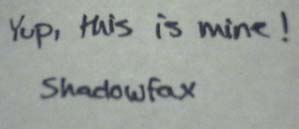 Yup, this is mine!
Shadowfax